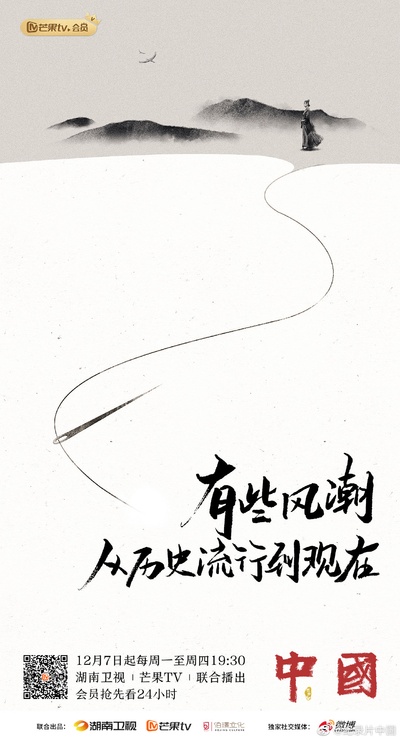 芒果tv·会员
有些风潮
从历史流行到现在
12月7日起每周一至周四19:30
湖南卫视 | 芒果TV | 联合播出
会员抢先看24小时
中國
联合出品: 湖南卫视 芒果tv 伯璟文化 独家社交媒体: 微博